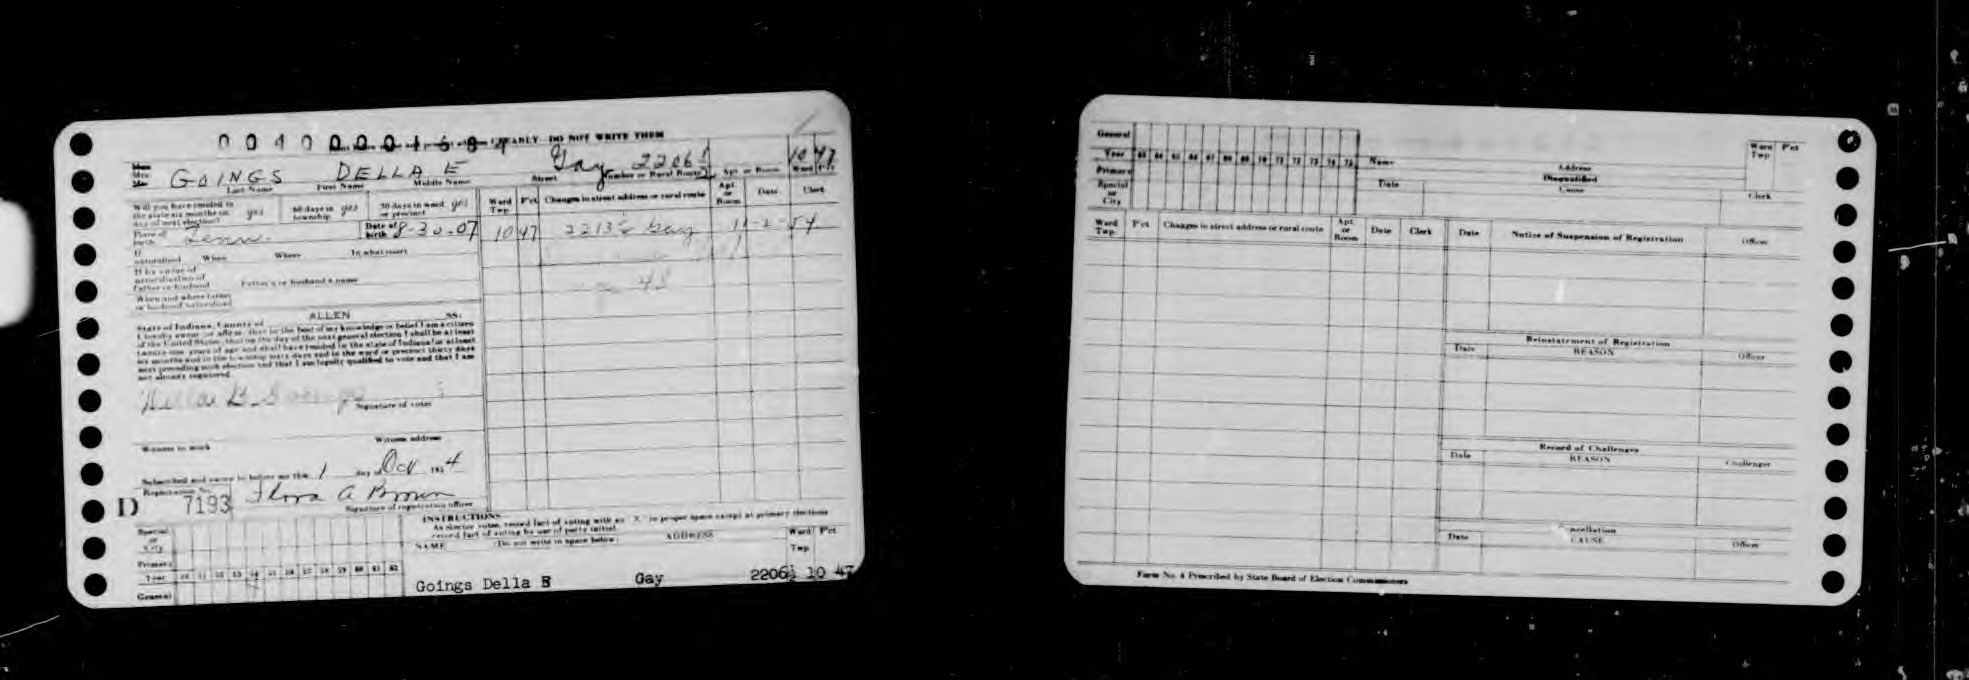 0040000
EARLY DO NOT WRITE THEM
GOINGS DELLA E Gay 2206½ 10 47
Last Name First Name Middle Name Street Number or Rural Route Apt or Room Ward P'ct
Will you have resided in the state six months on day of next election? yes 60 days in township yes 30 days in ward or precinct yes
Place of birth Tenn. Date of birth 8-30-07
If naturalized When Where In what court
If by virtue of naturalization of father or husband Father's or husband's name
When and where father or husband naturalized
State of Indiana, County of ALLEN SS:
I hereby swear or affirm that to the best of my knowledge or belief I am a citizen
of the United States, that on the day of the next general election I shall be at least
twenty-one years of age and shall have resided in the state of Indiana for at least
six months and in the township sixty days and in the ward or precinct thirty days
next preceding such election and that I am legally qualified to vote and that I am
not already registered.
Signature of voter
Witness to mark Witness address
Subscribed and sworn to before me this 1 day of 1954
Registration No.
D 7193 Flora A Brown
Signature of registration officer
Ward Twp. P'ct Changes in street address or rural route Apt. or Room Date Clerk
10 47 2213½ Gay 11-2-54
48
INSTRUCTIONS
As elector votes, record fact of voting with an X in proper space except at primary elections
record fact of voting by use of party initial.
NAME (Do not write in space below) ADDRESS Ward Twp P'ct
Special or City
Primary
Year 50 51 52 53 54 55 56 57 58 59 60 61 62
General
Goings Della E Gay 2206½ 10 47
General
Year 63 64 65 66 67 68 69 70 71 72 73 74 75
Primary
Special or City
Name Address Ward Twp P'ct
Disqualified
Date Cause Clerk
Ward Twp. P'ct Changes in street address or rural route Apt. or Room Date Clerk
Date Notice of Suspension of Registration Officer
Reinstatement of Registration
Date REASON Officer
Record of Challenges
Date REASON Challenger
Cancellation
Date CAUSE Officer
Form No. 4 Prescribed by State Board of Election Commissioners